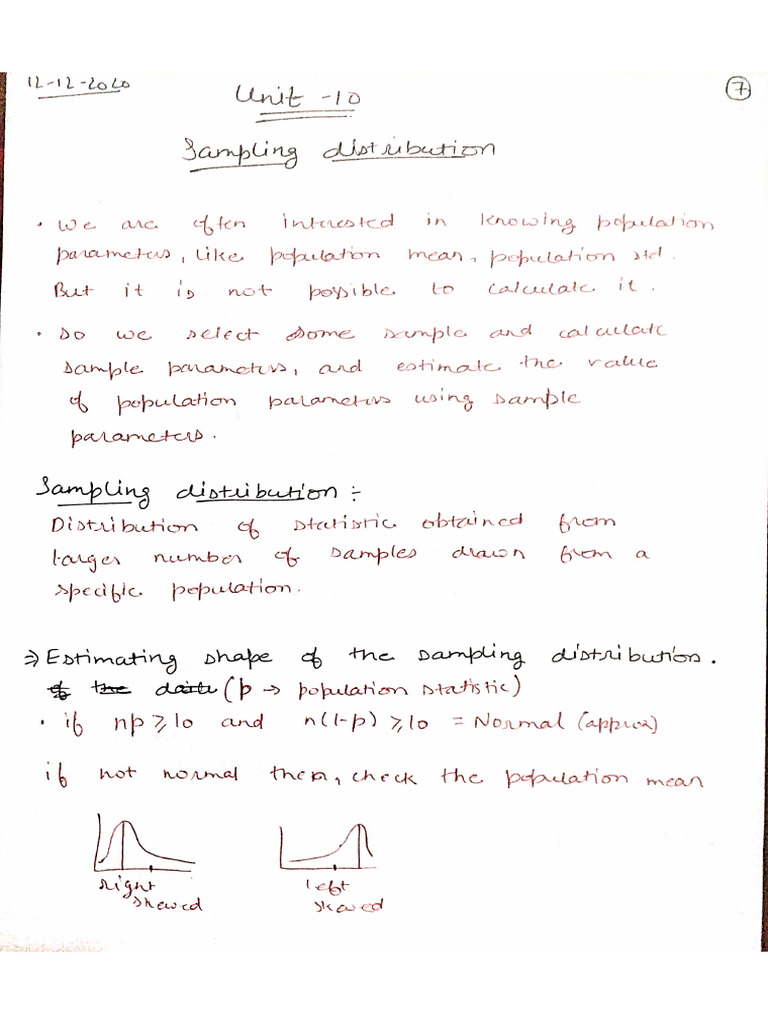 12-12-2020
7
Unit -10
Sampling distribution
• We are often interested in knowing population
parameters, like population mean, population std.
But it is not possible to calculate it.
• so we select some sample and calculate
sample parameters, and estimate the value
of population parameters using sample
parameters.
Sampling distribution :-
Distribution of statistic obtained from
larger number of samples drawn from a
specific population.
⇒ Estimating shape of the sampling distribution.
(p → population statistic)
• if np ≥ 10 and n(1-p) ≥ 10 = Normal (approx)
if not normal then, check the population mean
right
skewed
left
skewed